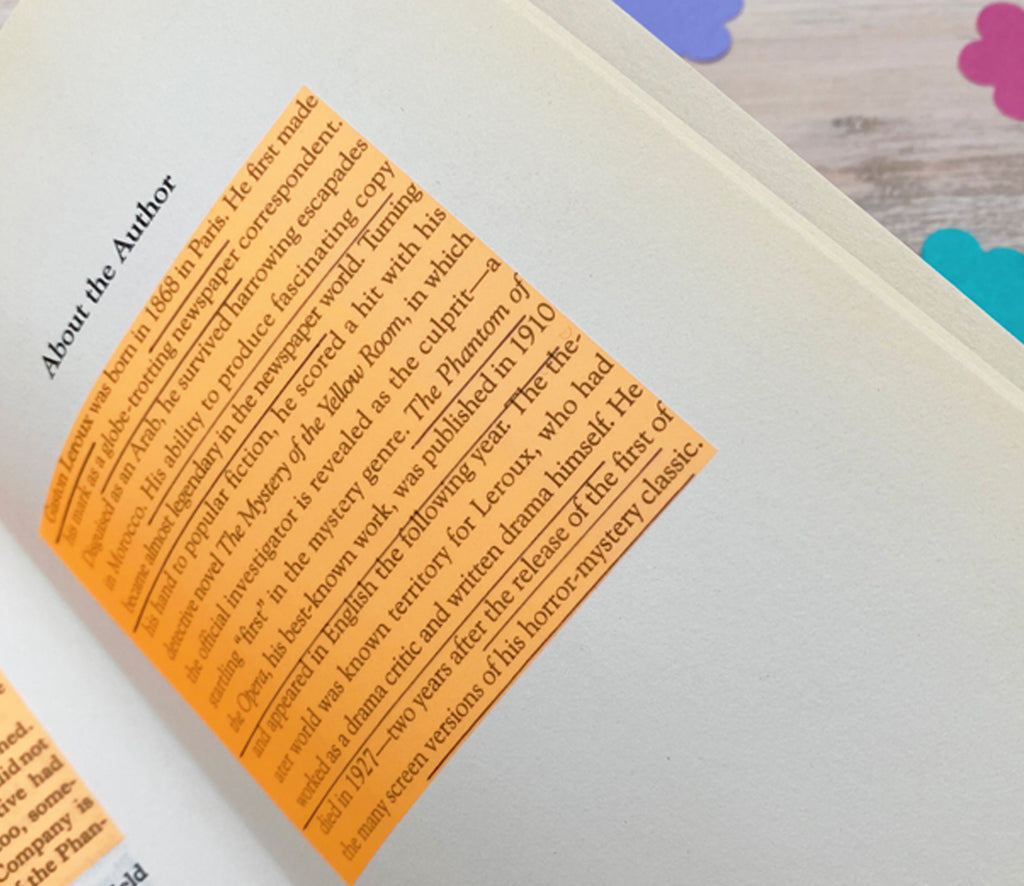 ned.
did not
tive had
too, some-
Company is
f the Phan-
eld
About the Author
Gaston Leroux was born in 1868 in Paris. He first made
his mark as a globe-trotting newspaper correspondent.
Disguised as an Arab, he survived harrowing escapades
in Morocco. His ability to produce fascinating copy
became almost legendary in the newspaper world. Turning
his hand to popular fiction, he scored a hit with his
detective novel The Mystery of the Yellow Room, in which
the official investigator is revealed as the culprit—a
startling "first" in the mystery genre. The Phantom of
the Opera, his best-known work, was published in 1910
and appeared in English the following year. The the-
ater world was known territory for Leroux, who had
worked as a drama critic and written drama himself. He
died in 1927—two years after the release of the first of
the many screen versions of his horror-mystery classic.